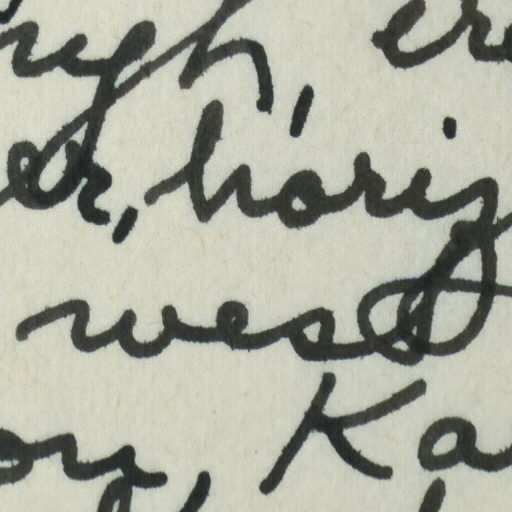 ugh, er
er, horiz
wes
on, Ka